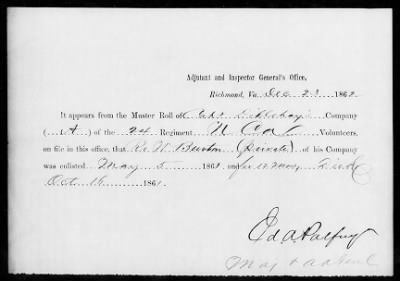 Adjutant and Inspector General's Office,
Richmond, Va. Dec 23 1862
It appears from the Muster Roll of Company
( A ) of the 24 Regiment N Ca Volunteers,
on file in this office, that Burton (Private) of his Company
was enlisted May 5 1861 and for 12 mos,
Oct 16 1861.
Ed A Palfrey
Maj